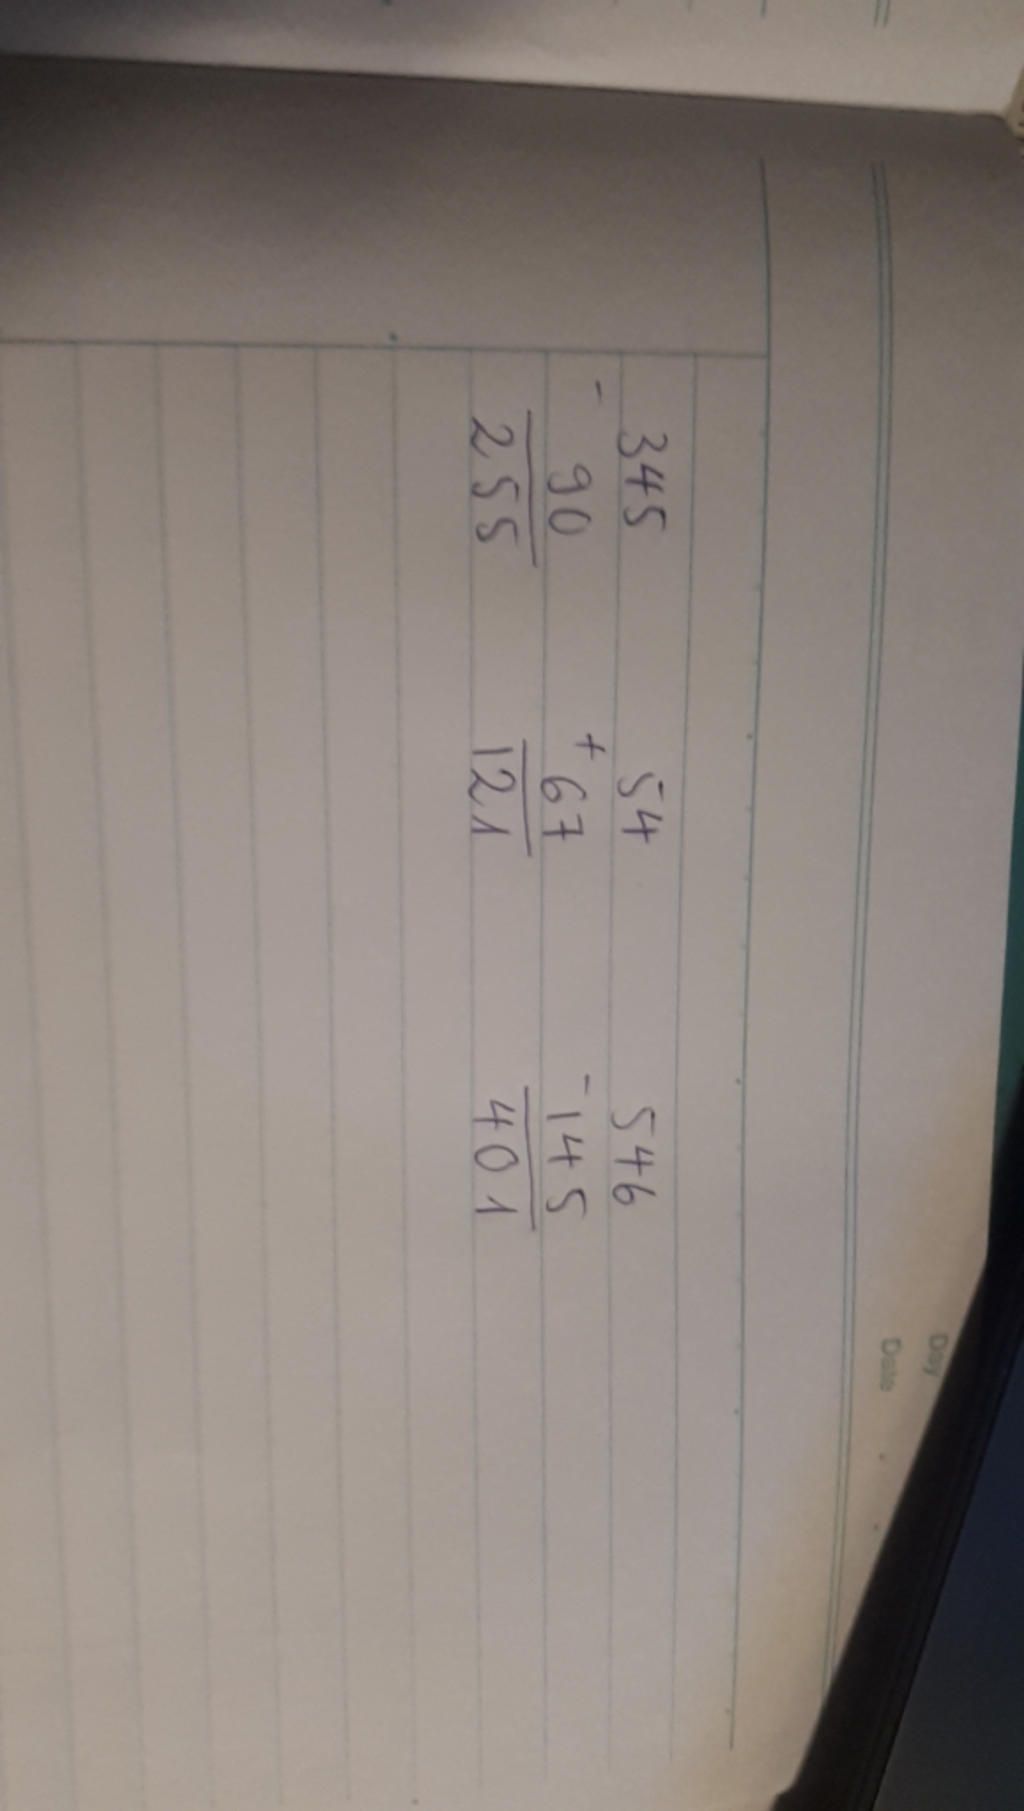 Day
Date
345 54 546
- 90 + 67 - 145
255 121 401